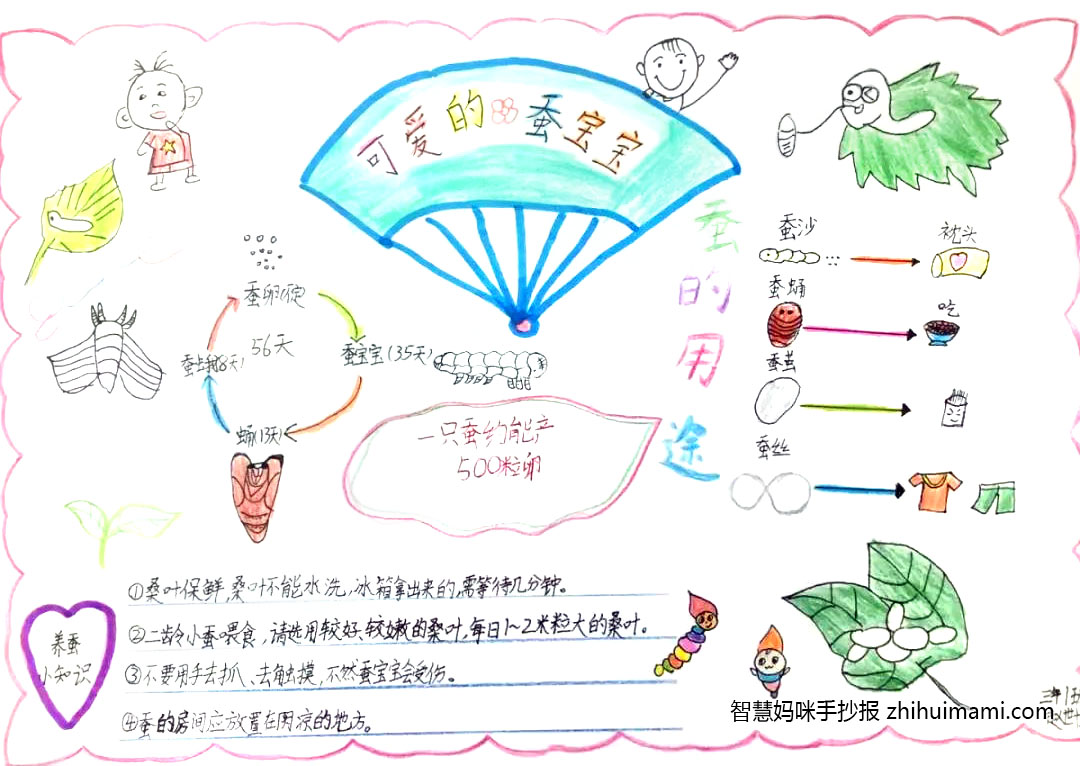 可爱的蚕宝宝
蚕的用途
蚕沙
枕头
蚕蛹
吃
蚕茧
蚕丝
蚕卵
56天
蚕宝宝(35天)
蛹(13天)
一只蚕约能产
500粒卵
养蚕
小知识
①桑叶保鲜,桑叶不能水洗,冰箱拿出来的,需等待几分钟。
②二龄小蚕喂食,请选用较好、较嫩的桑叶,每日1~2米粒大的桑叶。
③不要用手去抓、去触摸,不然蚕宝宝会受伤。
④蚕的房间应放置在阴凉的地方。
智慧妈咪手抄报 zhihuimami.com